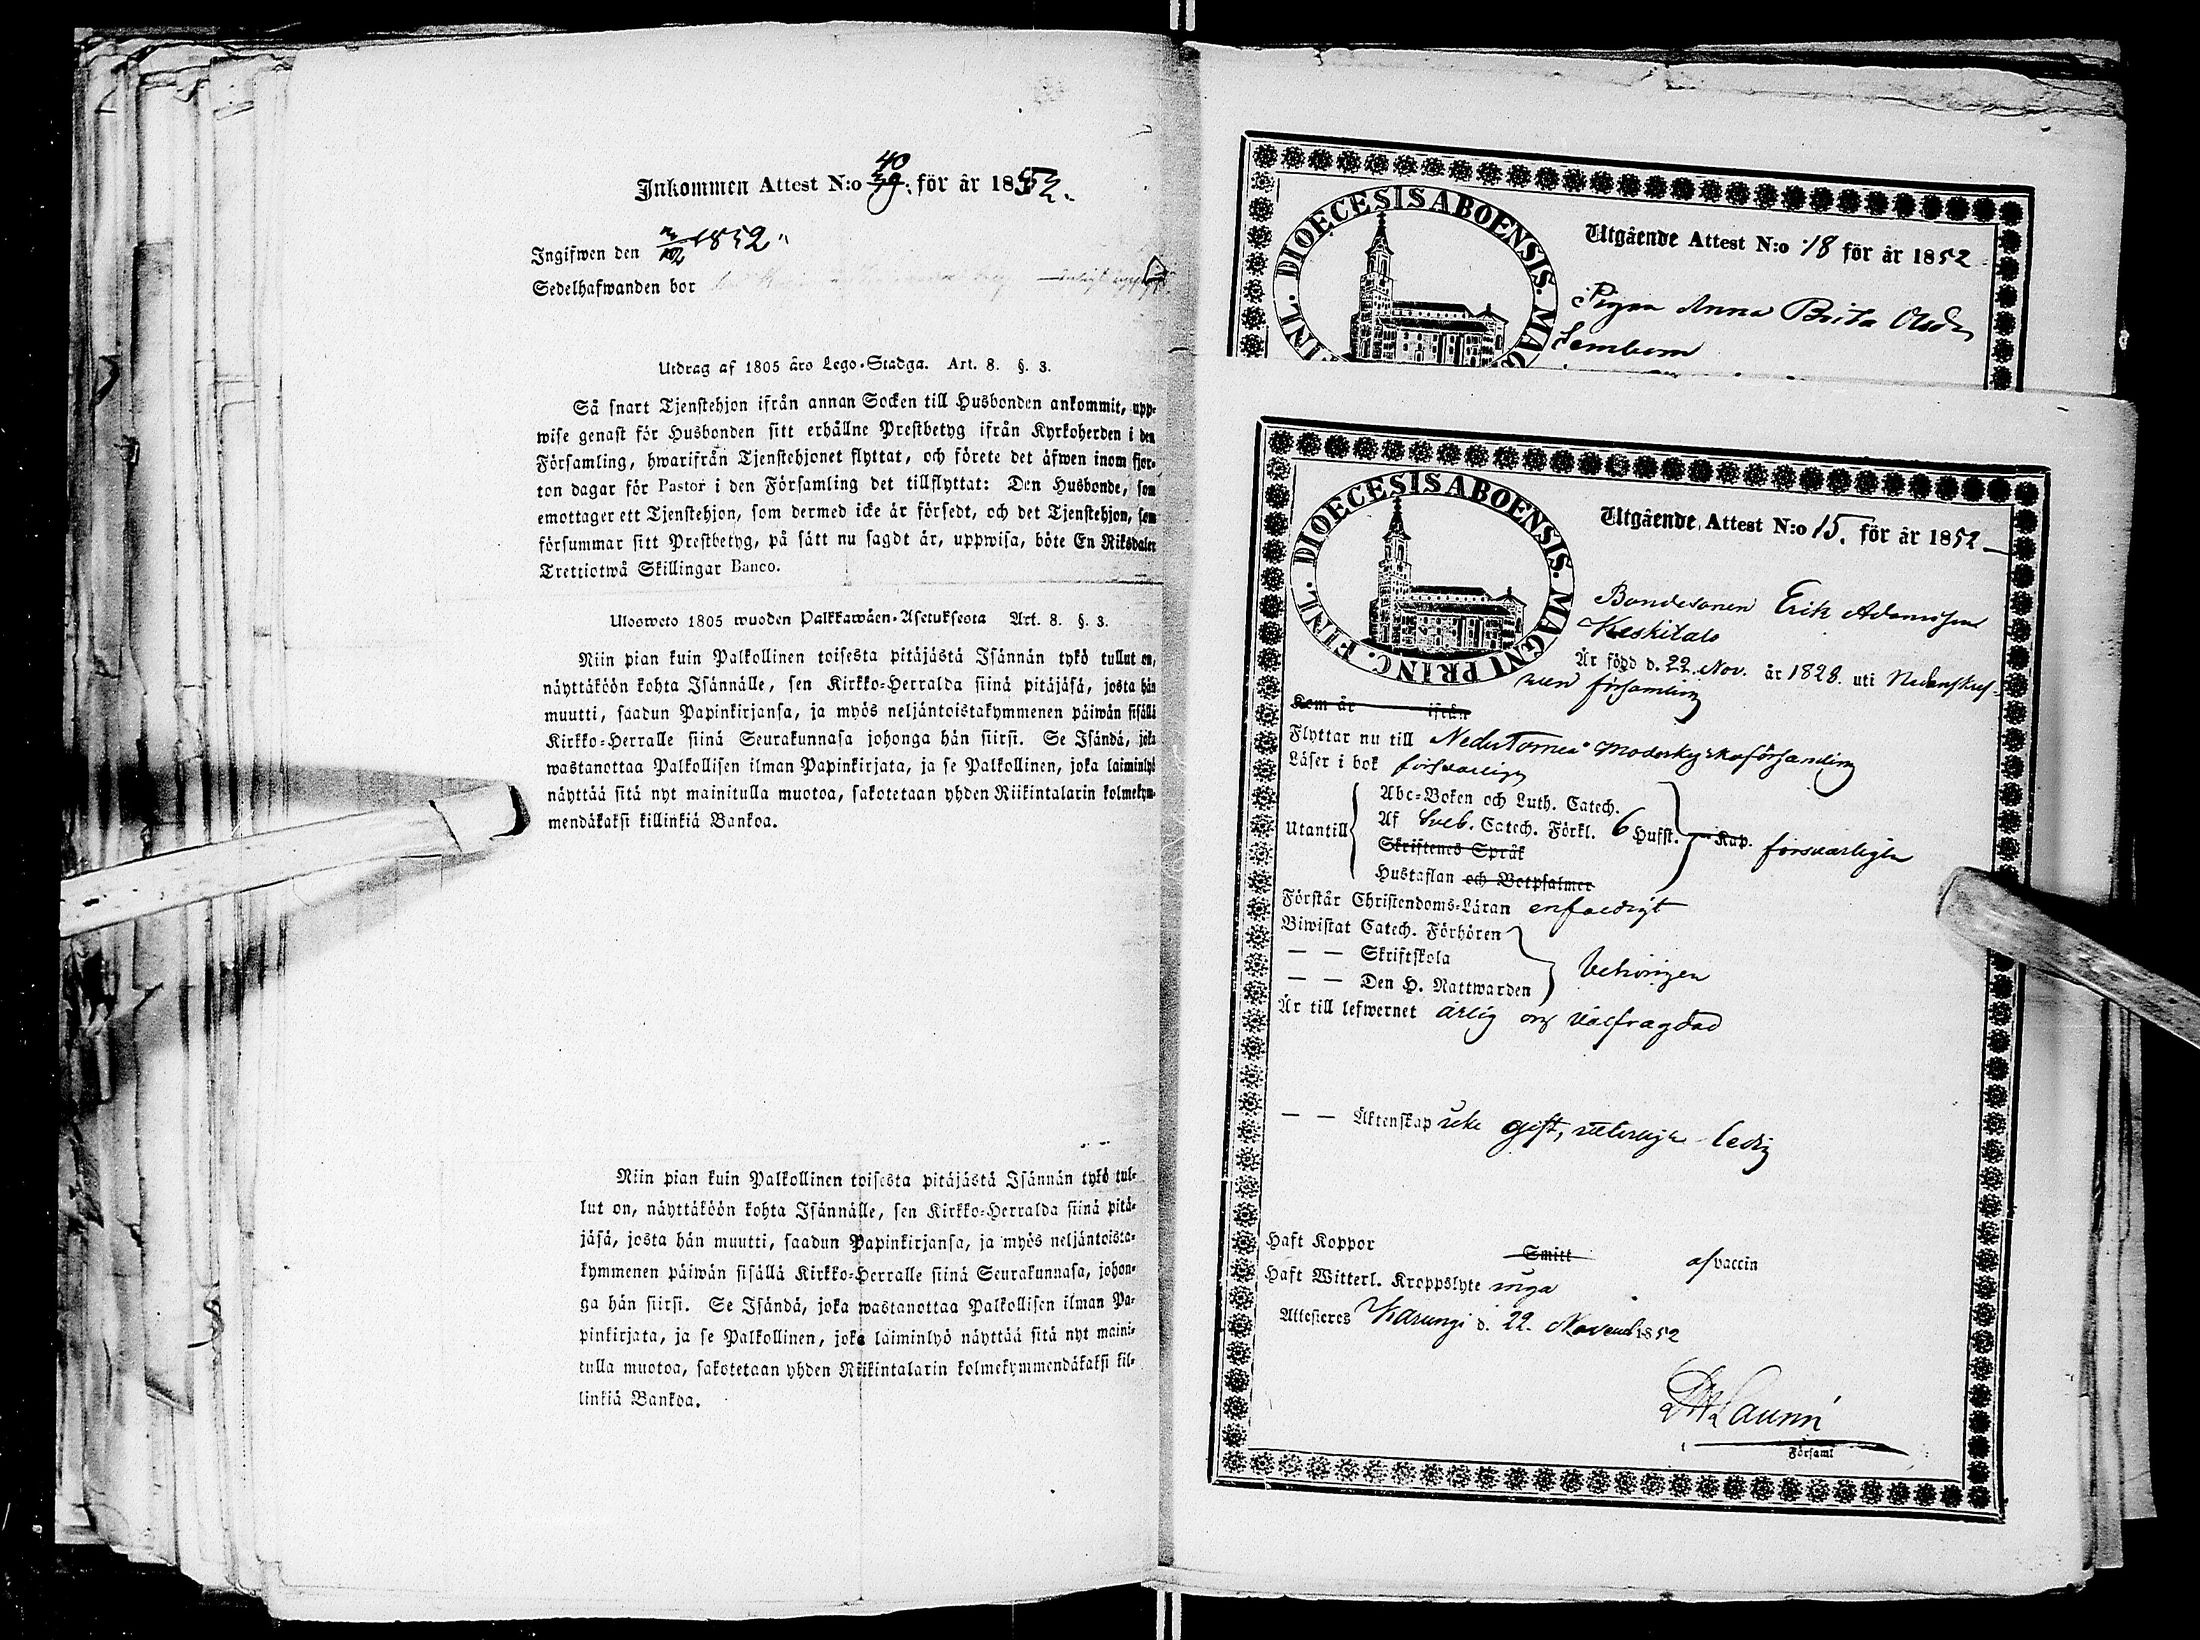 Inkommen Attest N:o 40 39. för år 1852.
Ingifwen den 2/12 1852
Sedelhafwanden bor
Utdrag af 1805 års Lego-Stadga. Art. 8. §. 3.
Så snart Tjenstehjon ifrån annan Socken till Husbonden ankommit, upp-
wise genast för Husbonden sitt erhållne Prestbetyg ifrån Kyrkoherden i den
Församling, hwarifrån Tjenstehjonet flyttat, och förete det äfwen inom fjor-
ton dagar för Pastor i den Församling det tillflyttat: Den Husbonde, som
emottager ett Tjenstehjon, som dermed icke är försedt, och det Tjenstehjon, som
försummar sitt Prestbetyg, på sätt nu sagdt är, uppwisa, böte En Riksdaler
Trettiotwå Skillingar Banco.
Ulosweto 1805 wuoden Palkkawäen-Asetuksesta Art. 8. §. 3.
Niin pian kuin Palkollinen toisesta pitäjästä Isännän tykö tullut on,
näyttäköön kohta Isännälle, sen Kirkko-Herralda siinä pitäjäsä, josta hän
muutti, saadun Papinkirjansa, ja myös neljäntoistakymmenen päiwän sisällä
Kirkko-Herralle siinä Seurakunnasa johonga hän siirsi. Se Isändä, joka
wastanottaa Palkollisen ilman Papinkirjata, ja se Palkollinen, joka laiminlyö
näyttää sitä nyt mainitulla muotoa, sakotetaan yhden Riikintalarin kolmekym-
mendäkaksi killinkiä Bankoa.
Niin pian kuin Palkollinen toisesta pitäjästä Isännän tykö tul-
lut on, näyttäköön kohta Isännälle, sen Kirkko-Herralda siinä pitä-
jäsä, josta hän muutti, saadun Papinkirjansa, ja myös neljäntoista-
kymmenen päiwän sisällä Kirkko-Herralle siinä Seurakunnasa, johon-
ga hän siirsi. Se Isändä, joka wastanottaa Palkollisen ilman Pa-
pinkirjata, ja se Palkollinen, joka laiminlyö näyttää sitä nyt maini-
tulla muotoa, sakotetaan yhden Riikintalarin kolmekymmendäkaksi kil-
linkiä Bankoa.
DIOECESIS ABOENSIS. MAG
FINL.
Utgående Attest N:o 18 för år 1852
Pigan Anna Brita Olsdr
Lembom
DIOECESIS ABOENSIS. MAGNI PRINC. FINL.
Utgående Attest N:o 15. för år 1852
Bondesonen Erik Adamsson
Keskitalo
Är född d. 22 Nov. år 1828. uti
församling
Kom år ifrån
Flyttar nu till Neder Torneå Moderkyrkoförsamling
Läser i bok försvarligen
Utantill
Abc-Boken och Luth. Catech.
Af Sveb. Catech. Förkl. 6 Hufst. Kap. försvarligen
Skriftenes Språk
Hustaflan och Botpsalmer
Förstår Christendoms-Läran enfaldigt
Biwistat Catech. Förhören
— — Skriftskola behörigen
— — Den H. Nattwarden
Är till lefwernet ärlig och välfrägdad
— — Äktenskap icke gift, ledig
Haft Koppor Smitt af vaccin
Haft Witterl. Kroppslyte inga
Attesteres Karungi d. 22. Novemb 1852
Församl